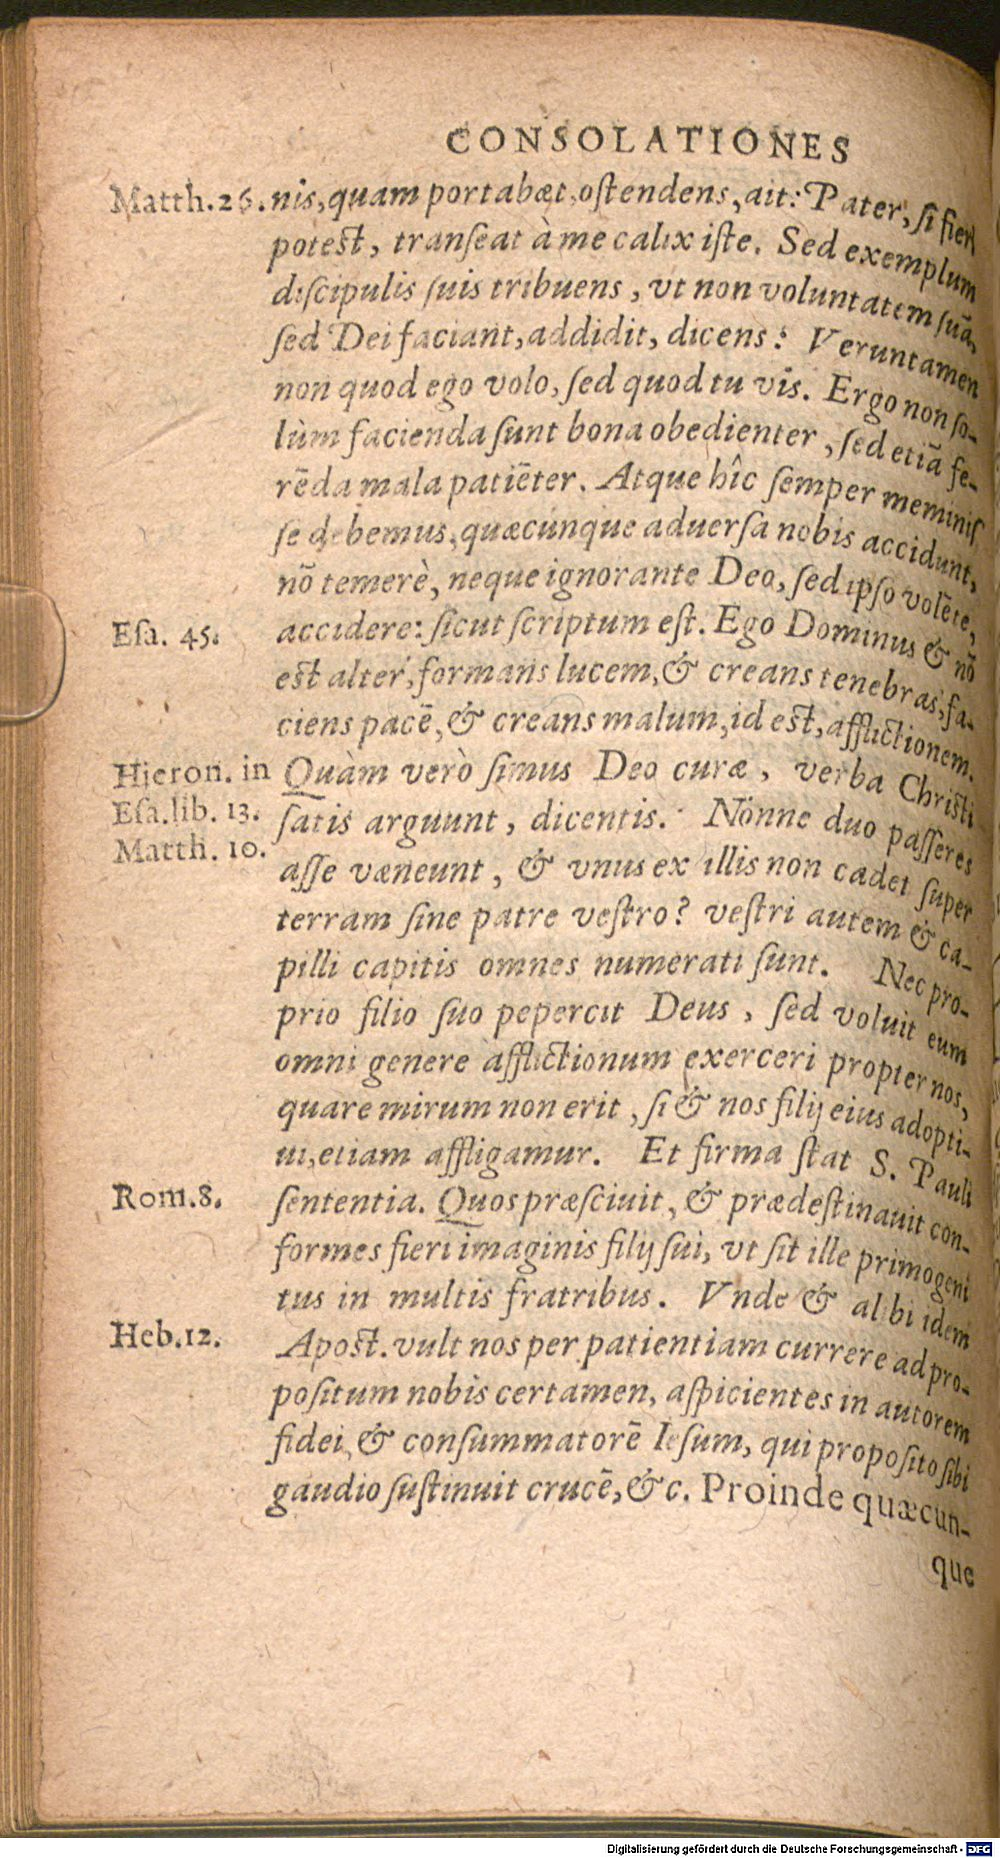 CONSOLATIONES
Matth.26. nis, quam portabat, oſtendens, ait: Pater, ſi fieri
poteſt, tranſeat à me calix iſte. Sed exemplum
diſcipulis ſuis tribuens, vt non voluntatem ſuã,
ſed Dei faciant, addidit, dicens: Veruntamen
non quod ego volo, ſed quod tu vis. Ergo non ſo-
lùm facienda ſunt bona obedienter, ſed etiã fe-
rẽda mala patiẽter. Atque hîc ſemper meminiſ
ſe debemus, quæcunque aduerſa nobis accidunt,
nõ temerè, neque ignorante Deo, ſed ipſo volẽte,
Eſa. 45. accidere: ſicut ſcriptum eſt. Ego Dominus & nõ
eſt alter, formans lucem, & creans tenebras, fa-
ciens pacẽ, & creans malum, id eſt, afflictionem.
Hieron. in Quàm verò ſimus Deo curæ, verba Chriſti
Eſa.lib. 13. ſatis arguunt, dicentis. Nónne duo paſſeres
Matth. 10. aſſe væneunt, & vnus ex illis non cadet ſuper
terram ſine patre veſtro? veſtri autem & ca-
pilli capitis omnes numerati ſunt. Nec pro-
prio filio ſuo pepercit Deus, ſed voluit eum
omni genere afflictionum exerceri propter nos,
quare mirum non erit, ſi & nos filij eius adopti-
ui, etiam affligamur. Et firma ſtat S. Pauli
Rom.8. ſententia. Quos præſciuit, & prædeſtinauit con-
formes fieri imaginis filij ſui, vt ſit ille primogeni
tus in multis fratribus. Vnde & alibi idem
Heb.12. Apoſt. vult nos per patientiam currere ad pro-
poſitum nobis certamen, aſpicientes in autorem
fidei, & conſummatorẽ Ieſum, qui propoſito ſibi
gaudio ſuſtinuit crucẽ, &c. Proinde quæcun-
que
Digitalisierung gefördert durch die Deutsche Forschungsgemeinschaft - DFG